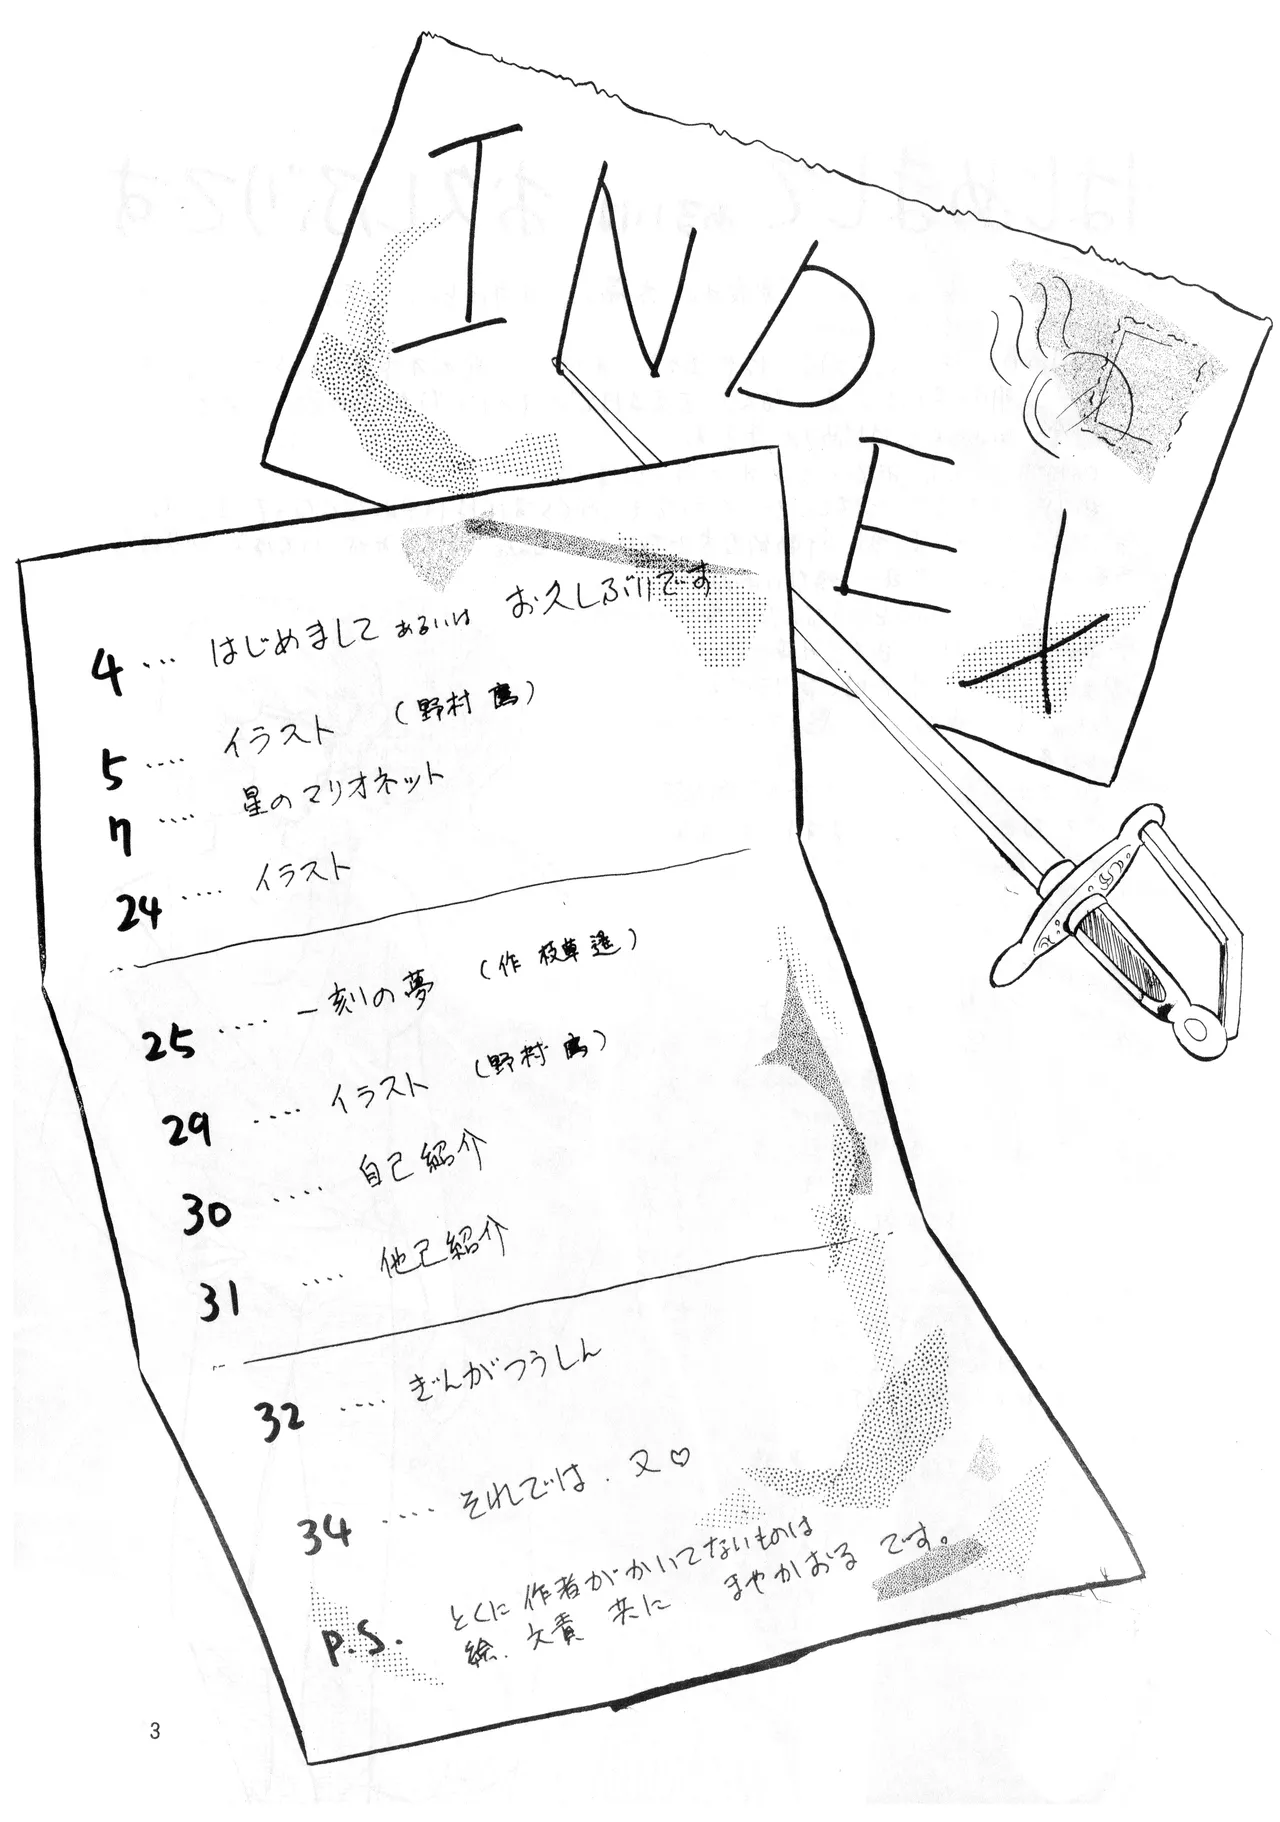 INDEX
4 ... はじめまして あるいは お久しぶりです
5 .... イラスト (野村 鷹)
7 .... 星のマリオネット
24 .... イラスト
25 ..... 一刻の夢 (作 枝草 遥)
29 .... イラスト (野村 鷹)
30 .... 自己紹介
31 .... 他己紹介
32 .... ぎんがつうしん
34 .... それでは、又♡
P.S. とくに作者がかいてないものは
絵、文責 共に まやかおる です。
3